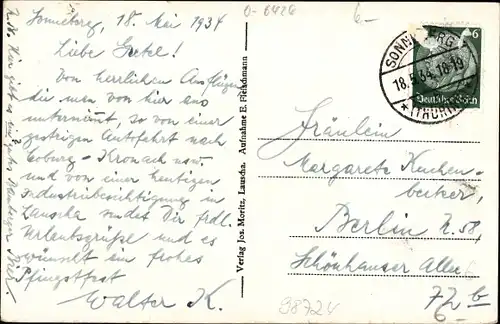 Sonneberg, 18. Mai 1934
Liebe Gretel!
Von herrlichen Ausflügen,
die man von hier aus
unternimmt, so von einer
gestrigen Autofahrt nach
Coburg - Kronach usw.
und von einer heutigen
Industriebesichtigung in
Lauscha sendet Dir frdl.
Urlaubsgrüße und
wünscht ein frohes
Pfingstfest
Walter K.
Hier gibt es ein gutes Bamberger Bier!
Verlag Jos. Moritz, Lauscha. Aufnahme E. Fleischmann
0-6426
6-
SONNEBERG
18.5.34.18-19
(THÜR)
6
Deutsches Reich
Fräulein
Margarete Kuchen-
becker,
Berlin N. 58,
Schönhauser Allee
72 b
98724